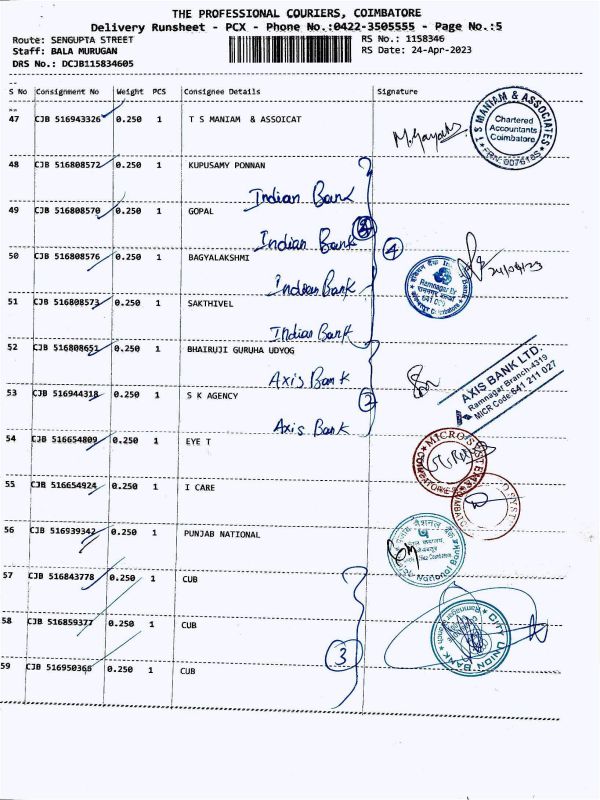 THE PROFESSIONAL COURIERS, COIMBATORE
Delivery Runsheet - PCX - Phone No.:0422-3505555 - Page No.:5
Route: SENGUPTA STREET
RS No.: 1158346
Staff: BALA MURUGAN
RS Date: 24-Apr-2023
DRS No.: DCJB115834605
S No Consignment No Weight PCS Consignee Details Signature
47 CJB 516943326 0.250 1 T S MANIAM & ASSOICAT
S MANIAM & ASSOCIATES
Chartered
Accountants
Coimbatore
FRN: 007618S
48 CJB 516808572 0.250 1 KUPUSAMY PONNAN
Indian Bank
49 CJB 516808570 0.250 1 GOPAL
Indian Bank
4
50 CJB 516808576 0.250 1 BAGYALAKSHMI
24/04/23
Indian Bank
51 CJB 516808573 0.250 1 SAKTHIVEL
Indian Bank
52 CJB 516808651 0.250 1 BHAIRUJI GURUHA UDYOG
Axis Bank
AXIS BANK LTD.
Ramnagar Branch-4319
MICR Code:641 211 027
53 CJB 516944318 0.250 1 S K AGENCY
2
Axis Bank
54 CJB 516654809 0.250 1 EYE T
55 CJB 516654924 0.250 1 I CARE
56 CJB 516939342 0.250 1 PUNJAB NATIONAL
National Bank
57 CJB 516843778 0.250 1 CUB
58 CJB 516859377 0.250 1 CUB
CITY UNION BANK
3
59 CJB 516950366 0.250 1 CUB